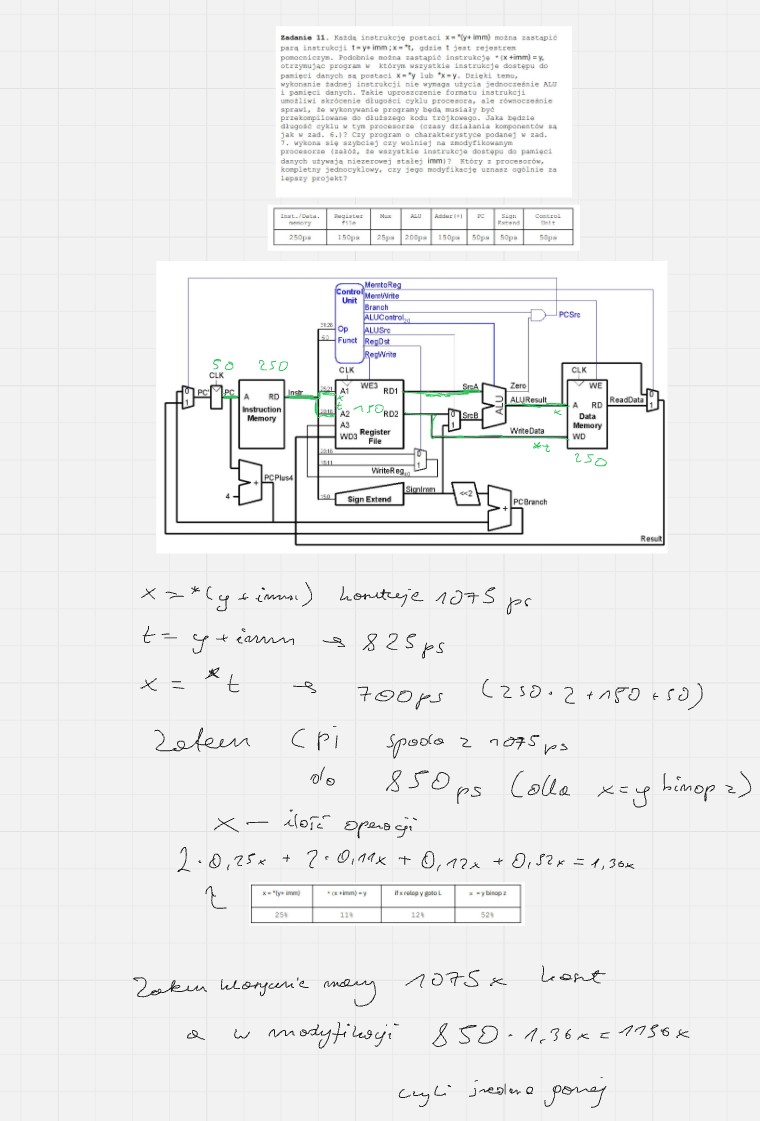 Zadanie 11. Każdą instrukcję postaci x = *(y+ imm) można zastąpić
parą instrukcji t = y+ imm ; x = *t, gdzie t jest rejestrem
pomocniczym. Podobnie można zastąpić instrukcję * (x +imm) = y,
otrzymując program w którym wszystkie instrukcje dostępu do
pamięci danych są postaci x = *y lub *x = y. Dzięki temu,
wykonanie żadnej instrukcji nie wymaga użycia jednocześnie ALU
i pamięci danych. Takie uproszczenie formatu instrukcji
umożliwi skrócenie długości cyklu procesora, ale równocześnie
sprawi, że wykonywanie programy będą musiały być
przekompilowane do dłuższego kodu trójkowego. Jaka będzie
długość cyklu w tym procesorze (czasy działania komponentów są
jak w zad. 6.)? Czy program o charakterystyce podanej w zad.
7. wykona się szybciej czy wolniej na zmodyfikowanym
procesorze (załóż, że wszystkie instrukcje dostępu do pamięci
danych używają niezerowej stałej imm)? Który z procesorów,
kompletny jednocyklowy, czy jego modyfikację uznasz ogólnie za
lepszy projekt?
Inst./Data. memory Register file Mux ALU Adder(+) PC Sign Extend Control Unit
250ps 150ps 25ps 200ps 150ps 50ps 50ps 50ps
MemtoReg
Control Unit MemWrite
Branch
ALUControl PCSrc
Op ALUSrc
Funct RegDst
RegWrite
50 250
CLK CLK CLK
PC' PC A RD Instr A1 WE3 RD1 SrcA Zero WE
Instruction Memory 150 ALU ALUResult A RD ReadData
A2 RD2 SrcB Data Memory
A3 Register File WriteData WD
WD3 250
WriteReg
PCPlus4 SignImm
4 Sign Extend <<2 PCBranch
Result
x = *(y + imm) kosztuje 1075 ps
t = y + imm → 825 ps
x = *t → 700 ps (250 · 2 + 150 + 50)
Zatem CPI spada z 1075 ps
do 850 ps (dla x = y binop z)
x — ilość operacji
2 · 0,25x + 2 · 0,11x + 0,12x + 0,52x = 1,36x
x = *(y+ imm) * (x +imm) = y if x relop y goto L x = y binop z
25% 11% 12% 52%
Zatem klasycznie mamy 1075 x koszt
a w modyfikacji 850 · 1,36x = 1156x
czyli